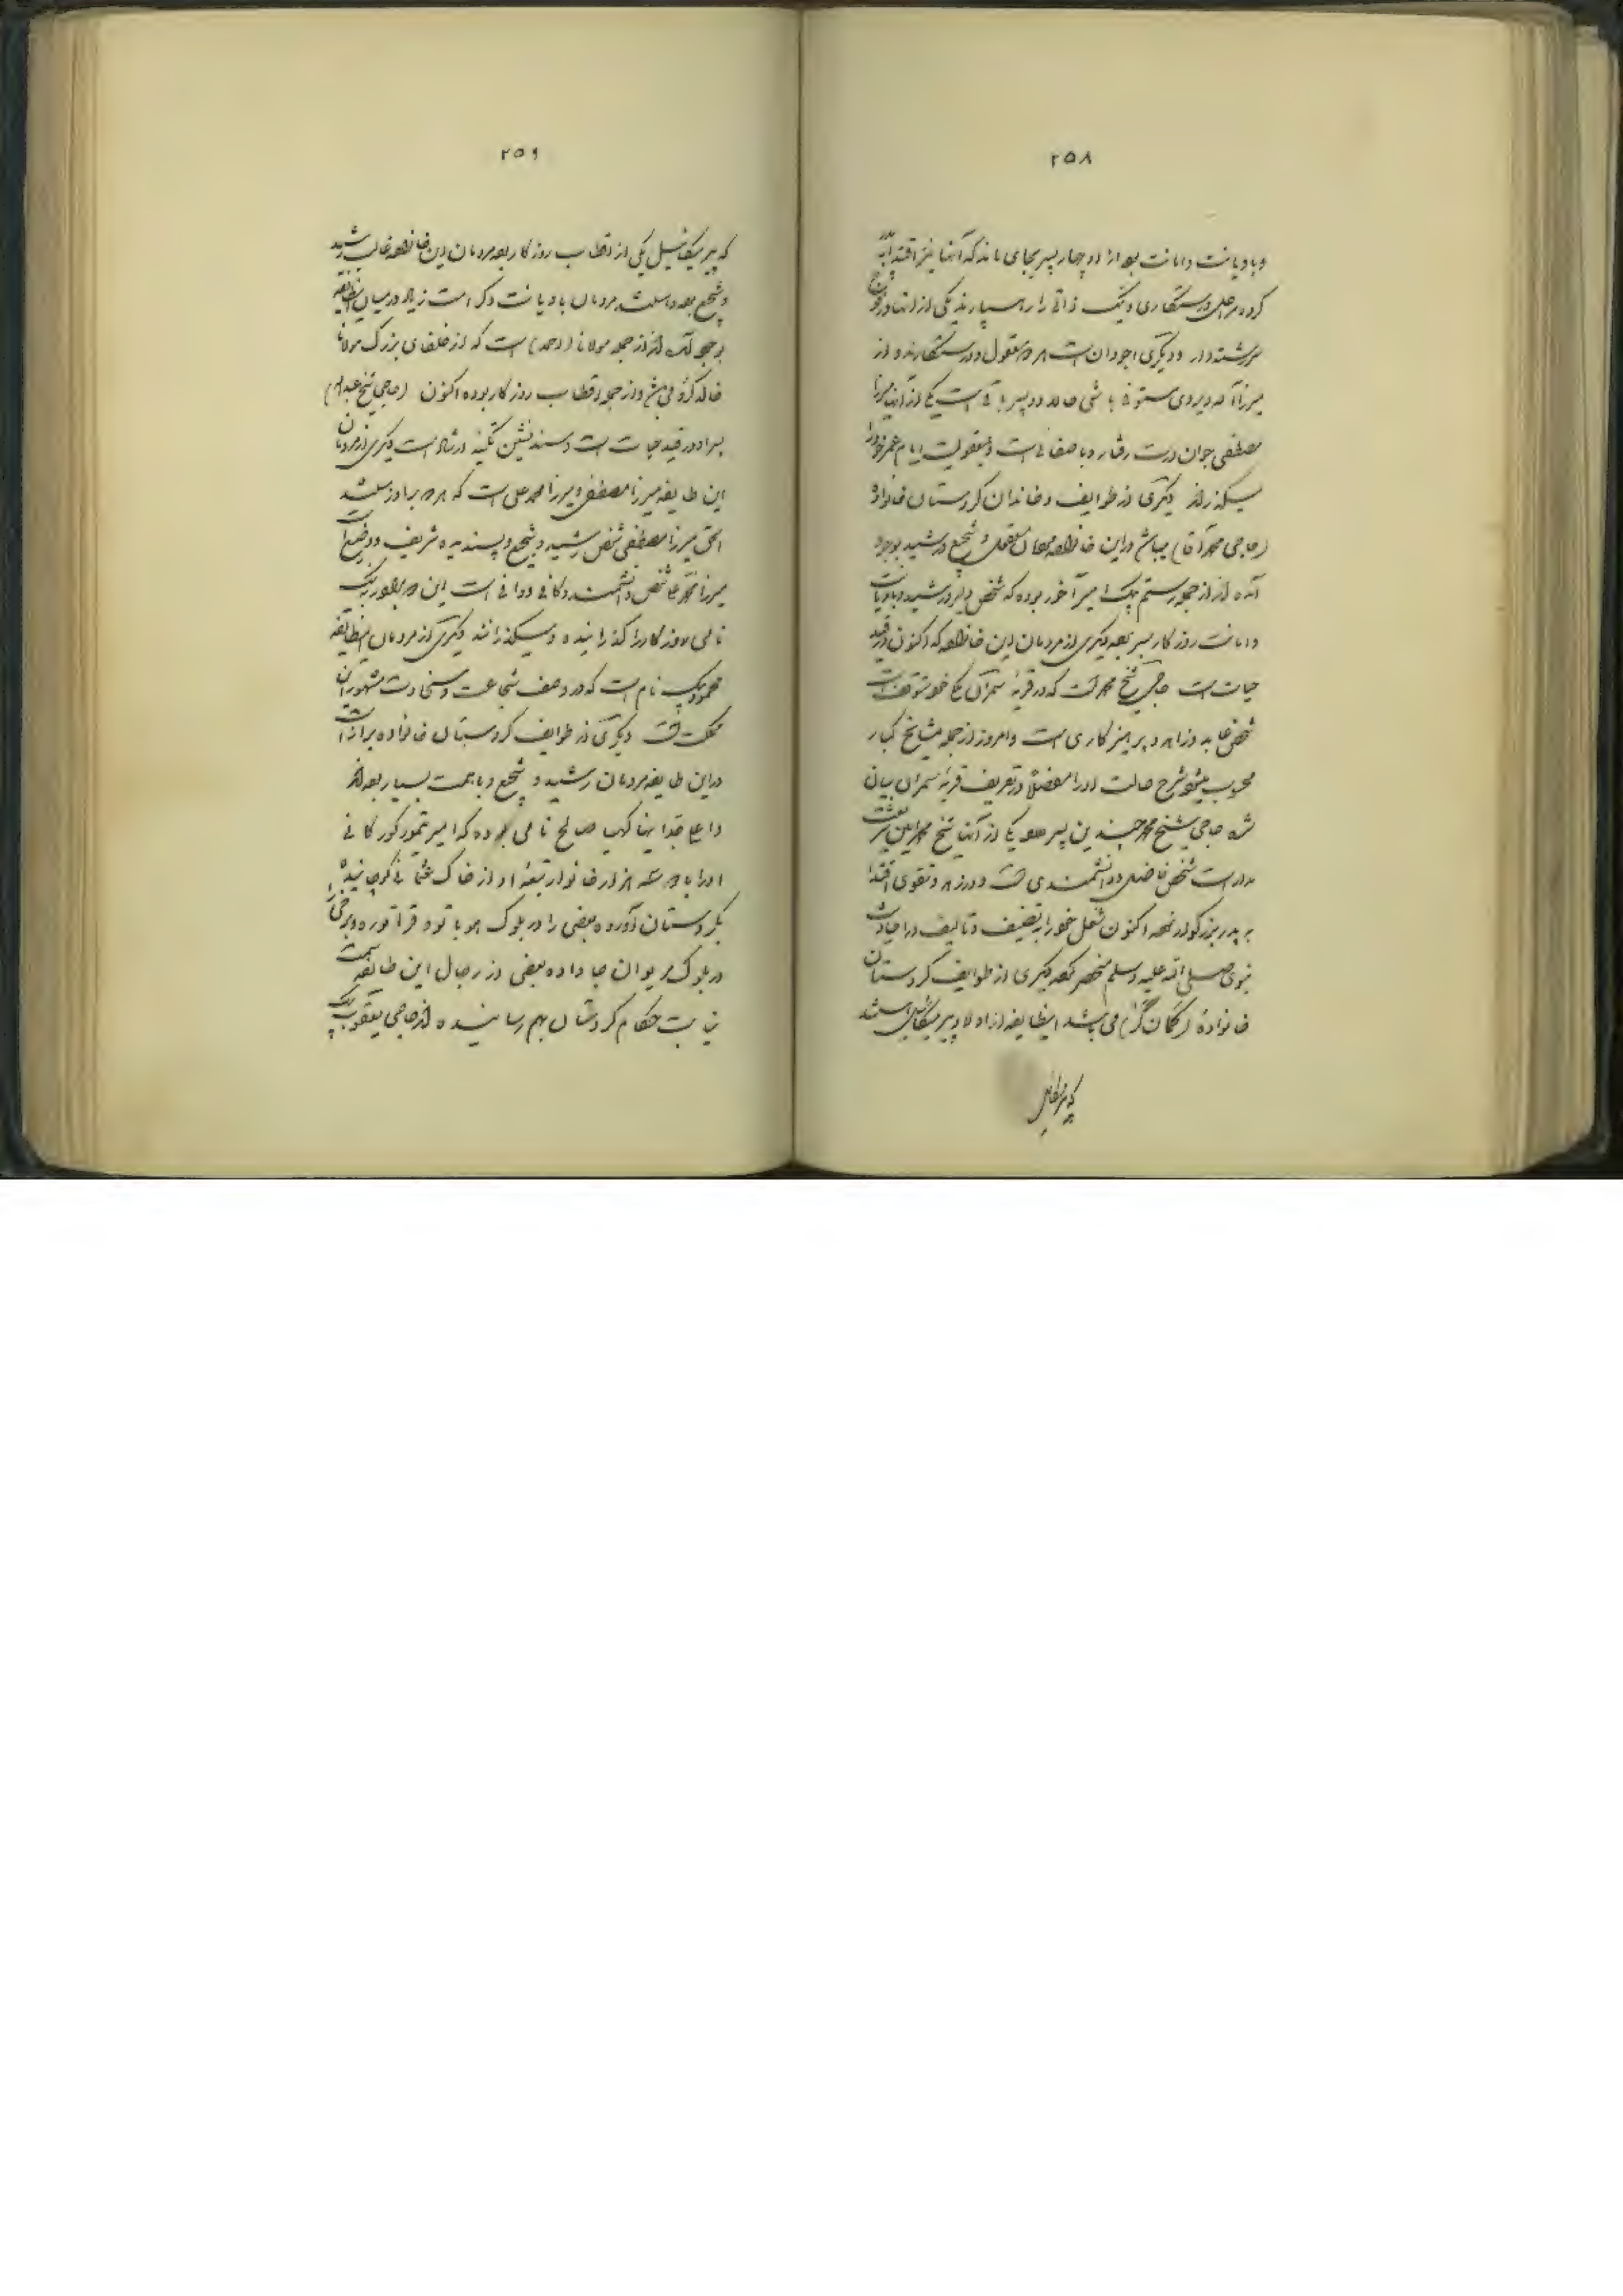 ۲۵۸
و با دیانت و امانت بود از او چهار پسر بجای ماند که آنها نیز اقتدا به پدر
کرده مراحل درستکاری و نیک ذاتی را رهسپارند یکی از آنها در فوج
سررشته‌دار و دیگری اجودان است هر دو معقول و درستکارند و از
میرزا مستوفی باشی دو پسر باقی است یکی از آنها میرزا
مصطفی جوان درست رفتار و با صفائی است و بمعقولیت ایام عمر خود را
میگذراند دیگری از طوایف و خاندان کردستان خانواده
(حاجی محمد آقا) میباشد در این خانواده مردمان معقول و شجیع و رشید بوجود
آمده‌اند از جمله رستم بیک میرآخور بوده که شخص دلیر و رشید و با دیانت
و امانت روزگار بسر برده دیگری از مردمان این خانواده که اکنون در قید
حیات است حاجی شیخ محمد است که در قریه سمران متوقف است
شخص عابد و زاهد و پرهیزکاری است و امروز از جمله مشایخ کبار
محسوب میشود شرح حالت او را مفصلاً در تعریف قریه سمران بیان
شد حاجی شیخ محمد چندین پسر دارد یکی از آنها شیخ محمد امین
است شخص فاضل و دانشمندی است و در زهد و تقوی اقتدا
به پدر بزرگوار نموده اکنون شغل خود را به تصنیف و تألیف در احادیث
نبوی صلی الله علیه و سلم منحصر کرده دیگری از طوایف کردستان
خانواده (کمانگر) می‌باشد این طایفه از اولاد پیر میکائیل هستند
که پیر میکائیل
۲۵۹
که پیر میکائیل یکی از اقطاب روزگار بوده مردمان این خانواده غالب رشید
و شجیع بوده و هستند مردمان با دیانت و کرامت زیاد در میان این طایفه
بوجود آمده‌اند از جمله مولانا (احمد) است که از خلفای بزرگ مولانا
خالد و از جمله اقطاب روزگار بوده اکنون (حاجی شیخ
پسر او در قید حیات است و مسندنشین تکیه ارشاد است دیگری از مردمان
این طایفه میرزا مصطفی و میرزا محمد علی است که هر دو برادر هستند
الحق میرزا مصطفی شخص رشید و شجیع و پسندیده شریف و وضیع است
میرزا محمد علی شخص دانشمند و کافی و وافی است این دو برادر به نیک
نامی روزگار را گذرانیده و میگذرانند دیگری از مردمان این طایفه
محمود بیک نام است که در وصف شجاعت و سخاوت مشهور این
مملکت است دیگری از طوایف کردستان خانواده براز است
در این طایفه مردمان رشید و شجیع و با همت بسیار بوده‌اند
اعلی جد اینها کهیا صالح نامی بوده که امیر تیمور گورکانی
او را با دو سه هزار خانوار تبعه او از خاک عثمانی کوچانیده
بکردستان آورده بعضی را در بلوک هوباتو و قراتوره و برخی را
در بلوک مریوان جا داده بعضی از رجال این طایفه سمت
نیابت حکام کردستان بهم رسانیده‌اند حاجی یعقوب بیک